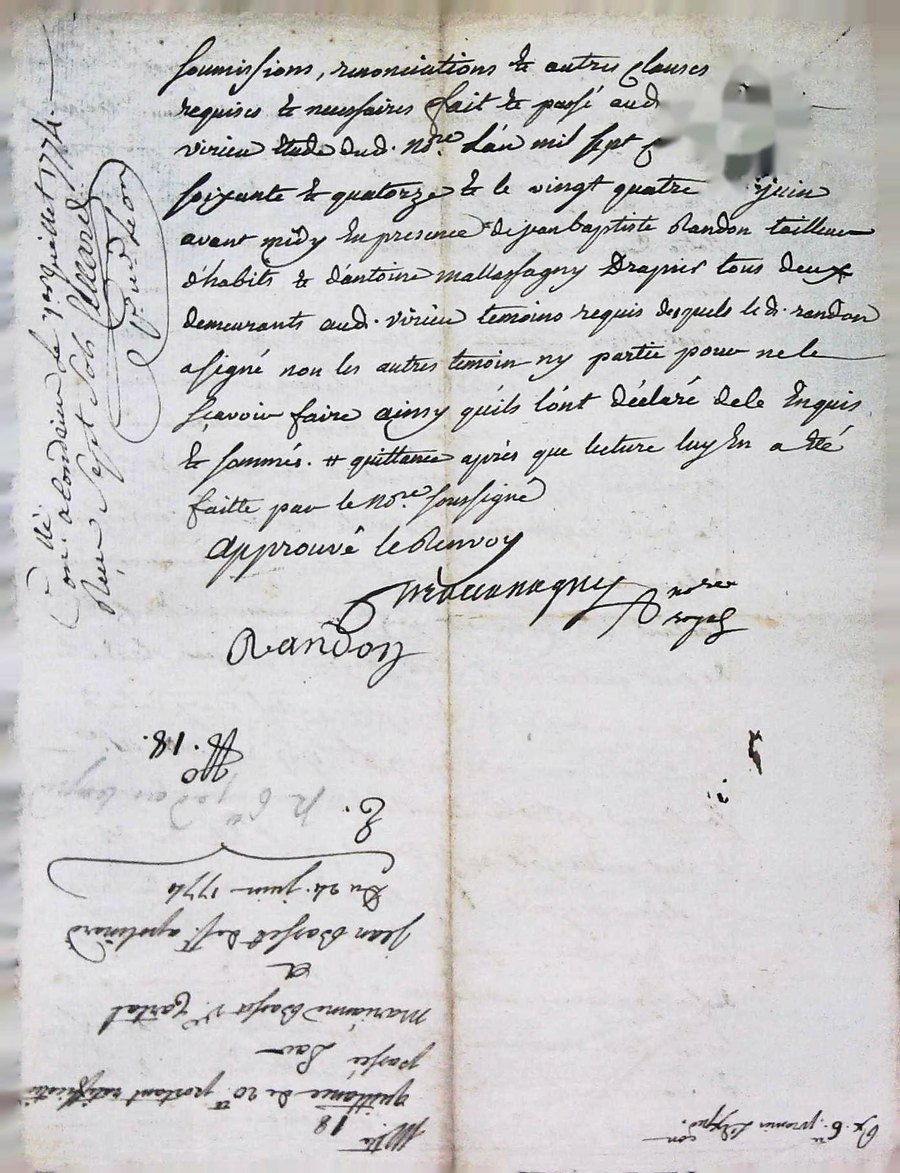 soumissions, renonciations & autres clauses
requises & necessaires fait & passé aud
virieu étude dud. nore. L'an mil sept
soixante & quatorze & le vingt quatre juin
avant midy En presence de jean baptiste Randon tailleur
d'habits & d'antoine mallassagny Drapier tous deux
demeurants aud. virieu temoins requis desquels led. randon
a signé non les autres temoin ny partie pour ne le
sçavoir faire ainsy qu'ils l'ont déclaré de ce Enquis
& sommés. # quittance après que lecture luy En a été
faitte par le nore. soussigné
approuvé le Renvoy
nore
royal
Randon
Con.lé a bondaieu le 7 juillet 1774.
Reçu sept sols
No. 18.
E.
Du 24. juin 1774
jean Basset de St. apolinard
a
marianne Basset ve.
passée Par
quittance de 20 tt portant
18